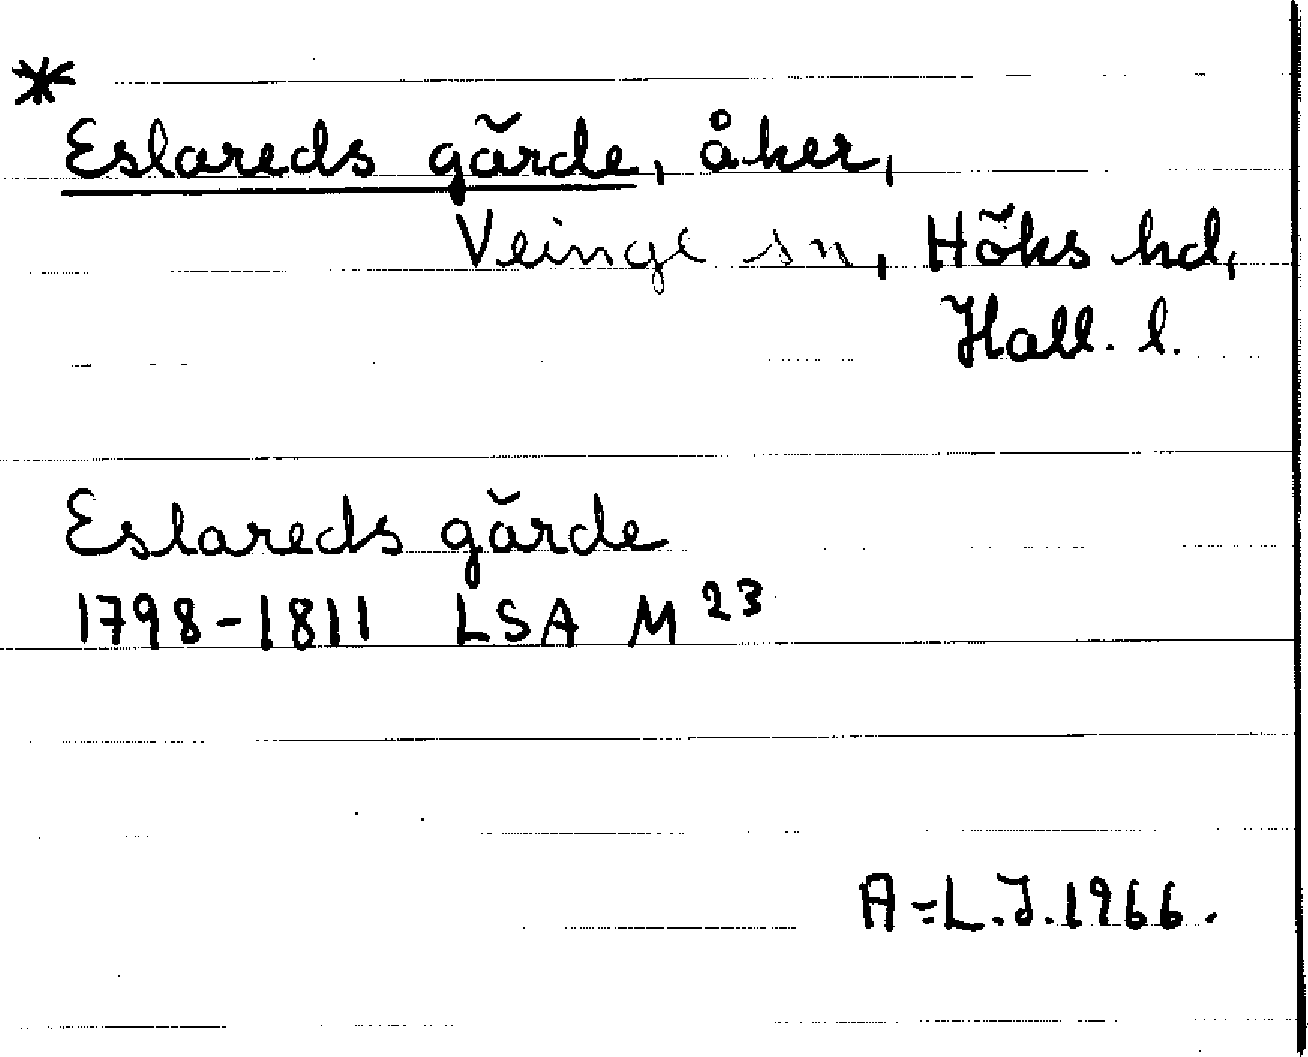 *
Eslareds gärde, åker,
Veinge sn, Höks hd,
Hall. l.
Eslareds gärde
1798-1811 LSA M 23
A=L.J.1966.